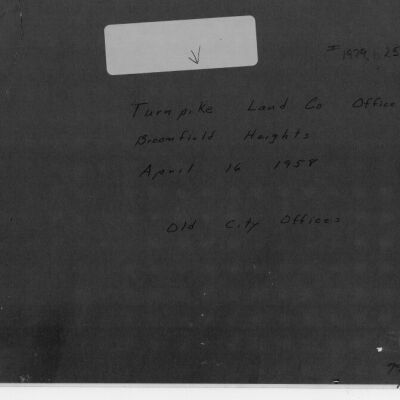 Turnpike Land Co Office
Broomfield Heights
April 16 1958
Old City Offices